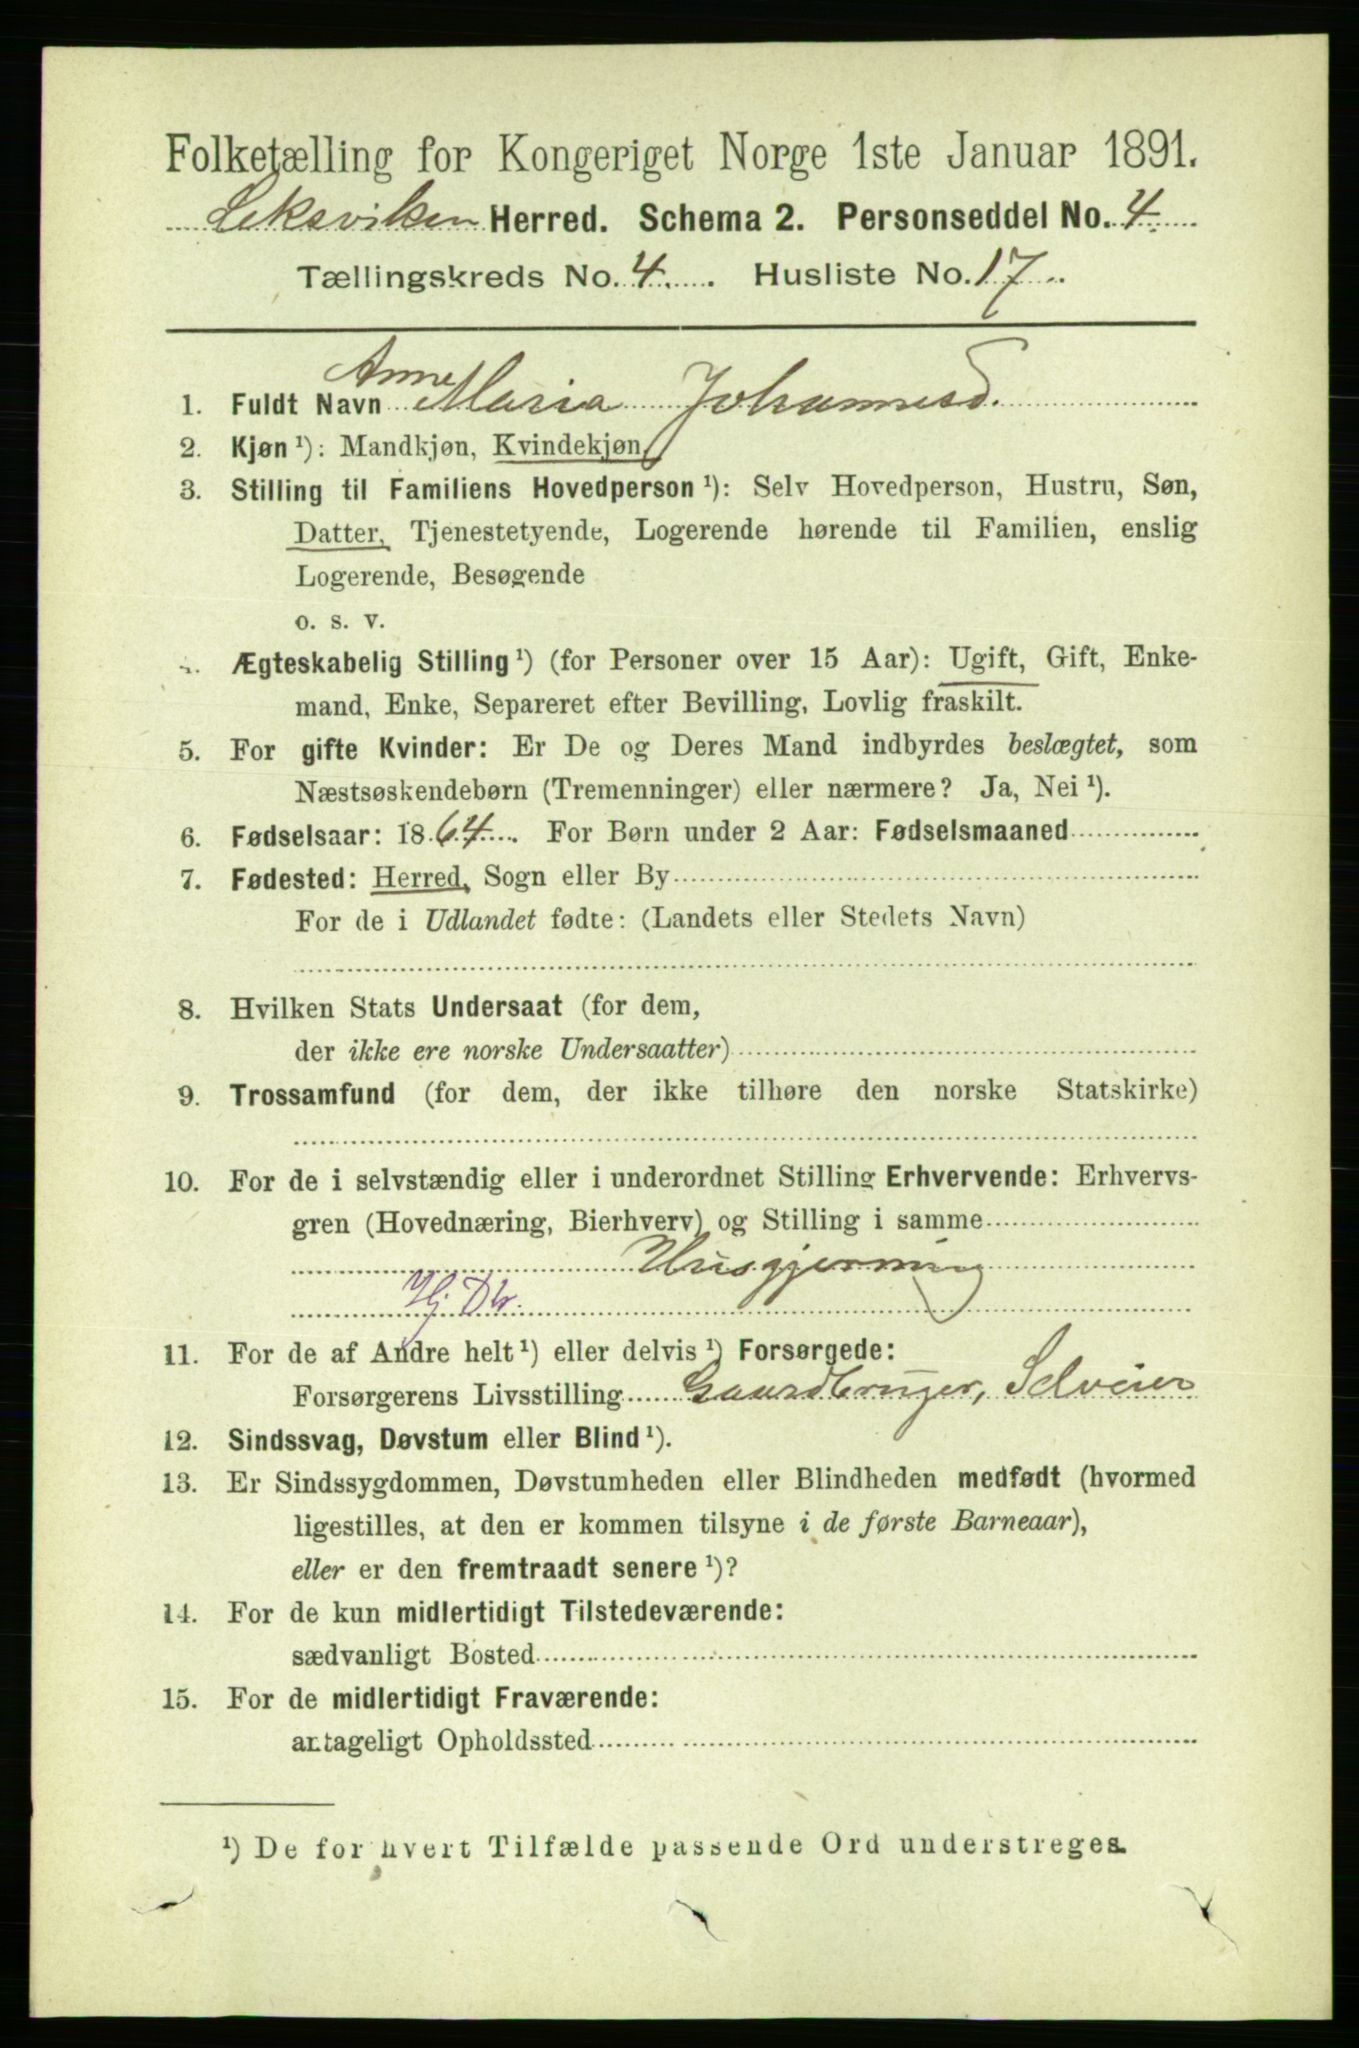 Folketælling for Kongeriget Norge 1ste Januar 1891.
Leksviken Herred. Schema 2. Personseddel No. 4.
Tællingskreds No. 4. Husliste No. 17
Anne
1. Fuldt Navn Maria Johannesd.
2. Kjøn ¹): Mandkjøn, Kvindekjøn
3. Stilling til Familiens Hovedperson ¹): Selv Hovedperson, Hustru, Søn,
Datter, Tjenestetyende, Logerende hørende til Familien, enslig
Logerende, Besøgende
o. s. v.
4. Ægteskabelig Stilling ¹) (for Personer over 15 Aar): Ugift, Gift, Enke-
mand, Enke, Separeret efter Bevilling, Lovlig fraskilt.
5. For gifte Kvinder: Er De og Deres Mand indbyrdes beslægtet, som
Næstsøskendebørn (Tremenninger) eller nærmere? Ja, Nei ¹).
6. Fødselsaar: 1864. For Børn under 2 Aar: Fødselsmaaned
7. Fødested: Herred, Sogn eller By
For de i Udlandet fødte: (Landets eller Stedets Navn)
8. Hvilken Stats Undersaat (for dem,
der ikke ere norske Undersaatter)
9. Trossamfund (for dem, der ikke tilhøre den norske Statskirke)
10. For de i selvstændig eller i underordnet Stilling Erhvervende: Erhvervs-
gren (Hovednæring, Bierhverv) og Stilling i samme
Husgjerning
Hj. Dtr.
11. For de af Andre helt ¹) eller delvis ¹) Forsørgede:
Forsørgerens Livsstilling Gaardbruger, Selveier
12. Sindssvag, Døvstum eller Blind ¹).
13. Er Sindssygdommen, Døvstumheden eller Blindheden medfødt (hvormed
ligestilles, at den er kommen tilsyne i de første Barneaar),
eller er den fremtraadt senere ¹)?
14. For de kun midlertidigt Tilstedeværende:
sædvanligt Bosted
15. For de midlertidigt Fraværende:
antageligt Opholdssted
¹) De for hvert Tilfælde passende Ord understreges.